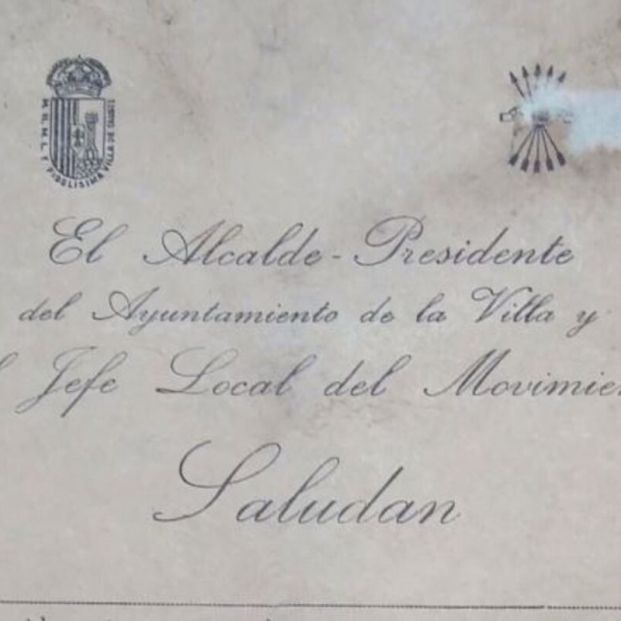 M. N. M. L. Y FIDELÍSIMA VILLA DE
El Alcalde-Presidente
del Ayuntamiento de la Villa y
Jefe Local del
Saludan